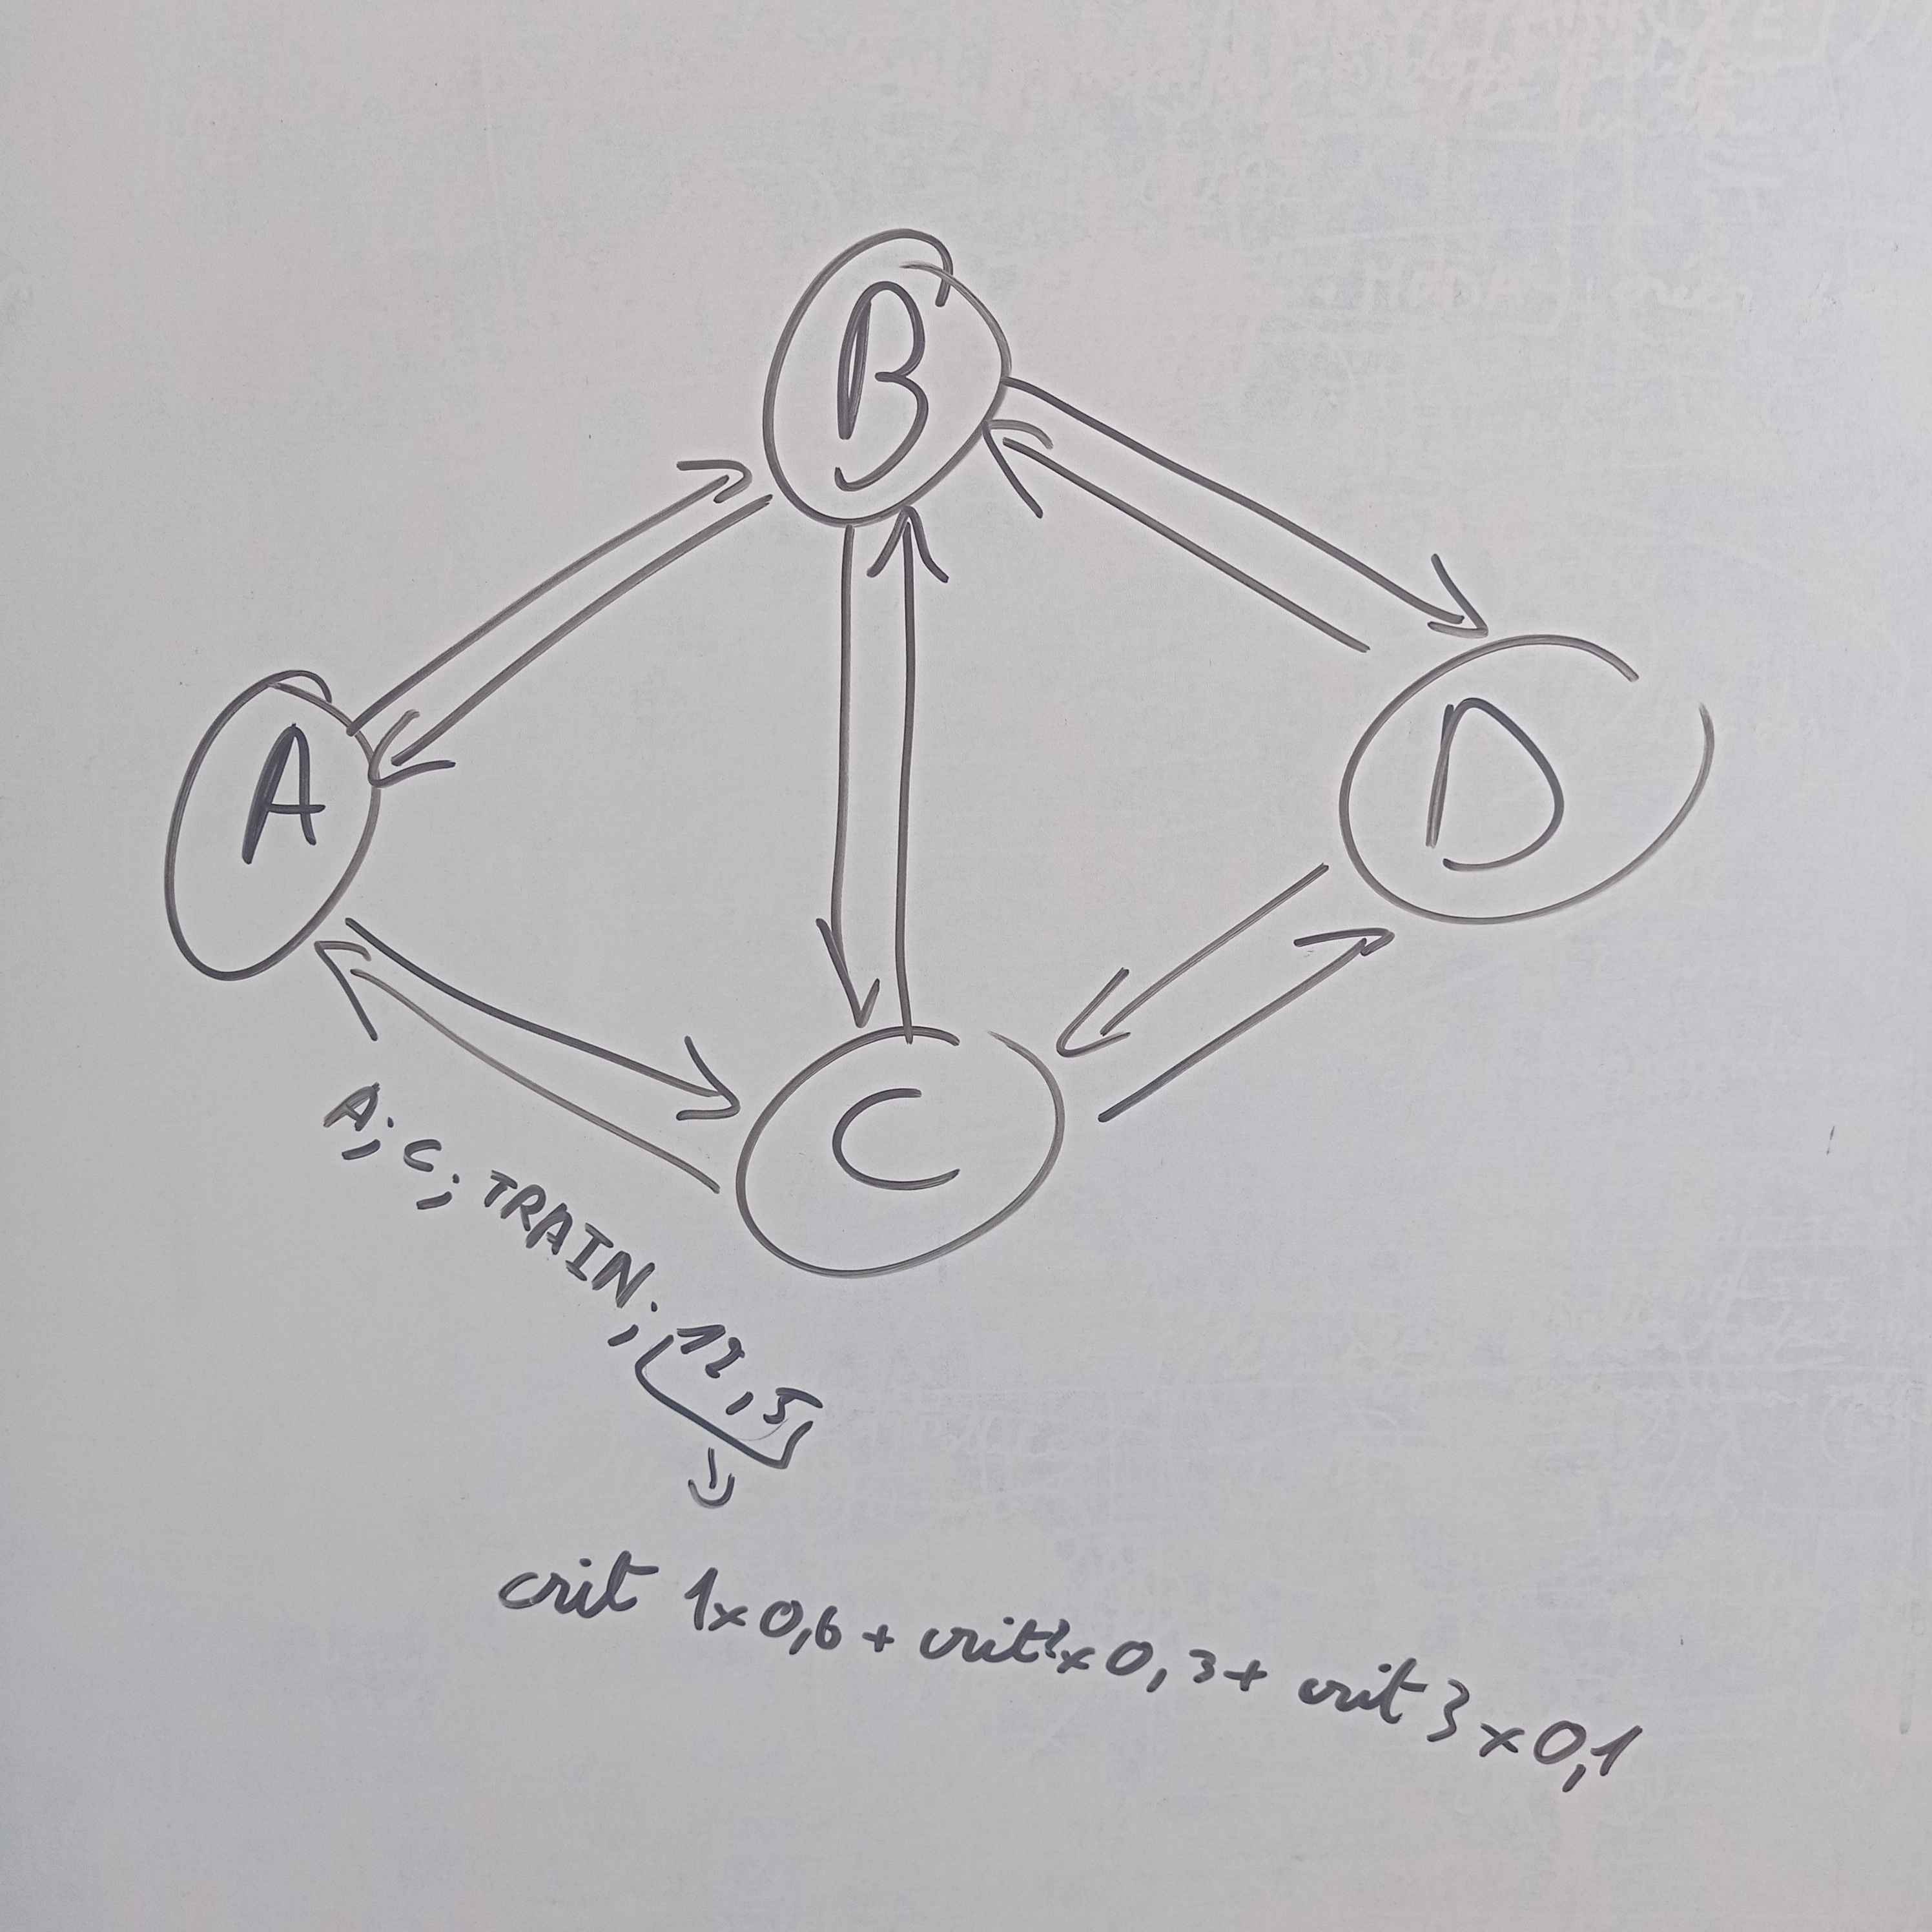 B
A
D
C
A; C; TRAIN; 12,5
crit 1x0,6 + crit2x0,3+ crit 3x0,1